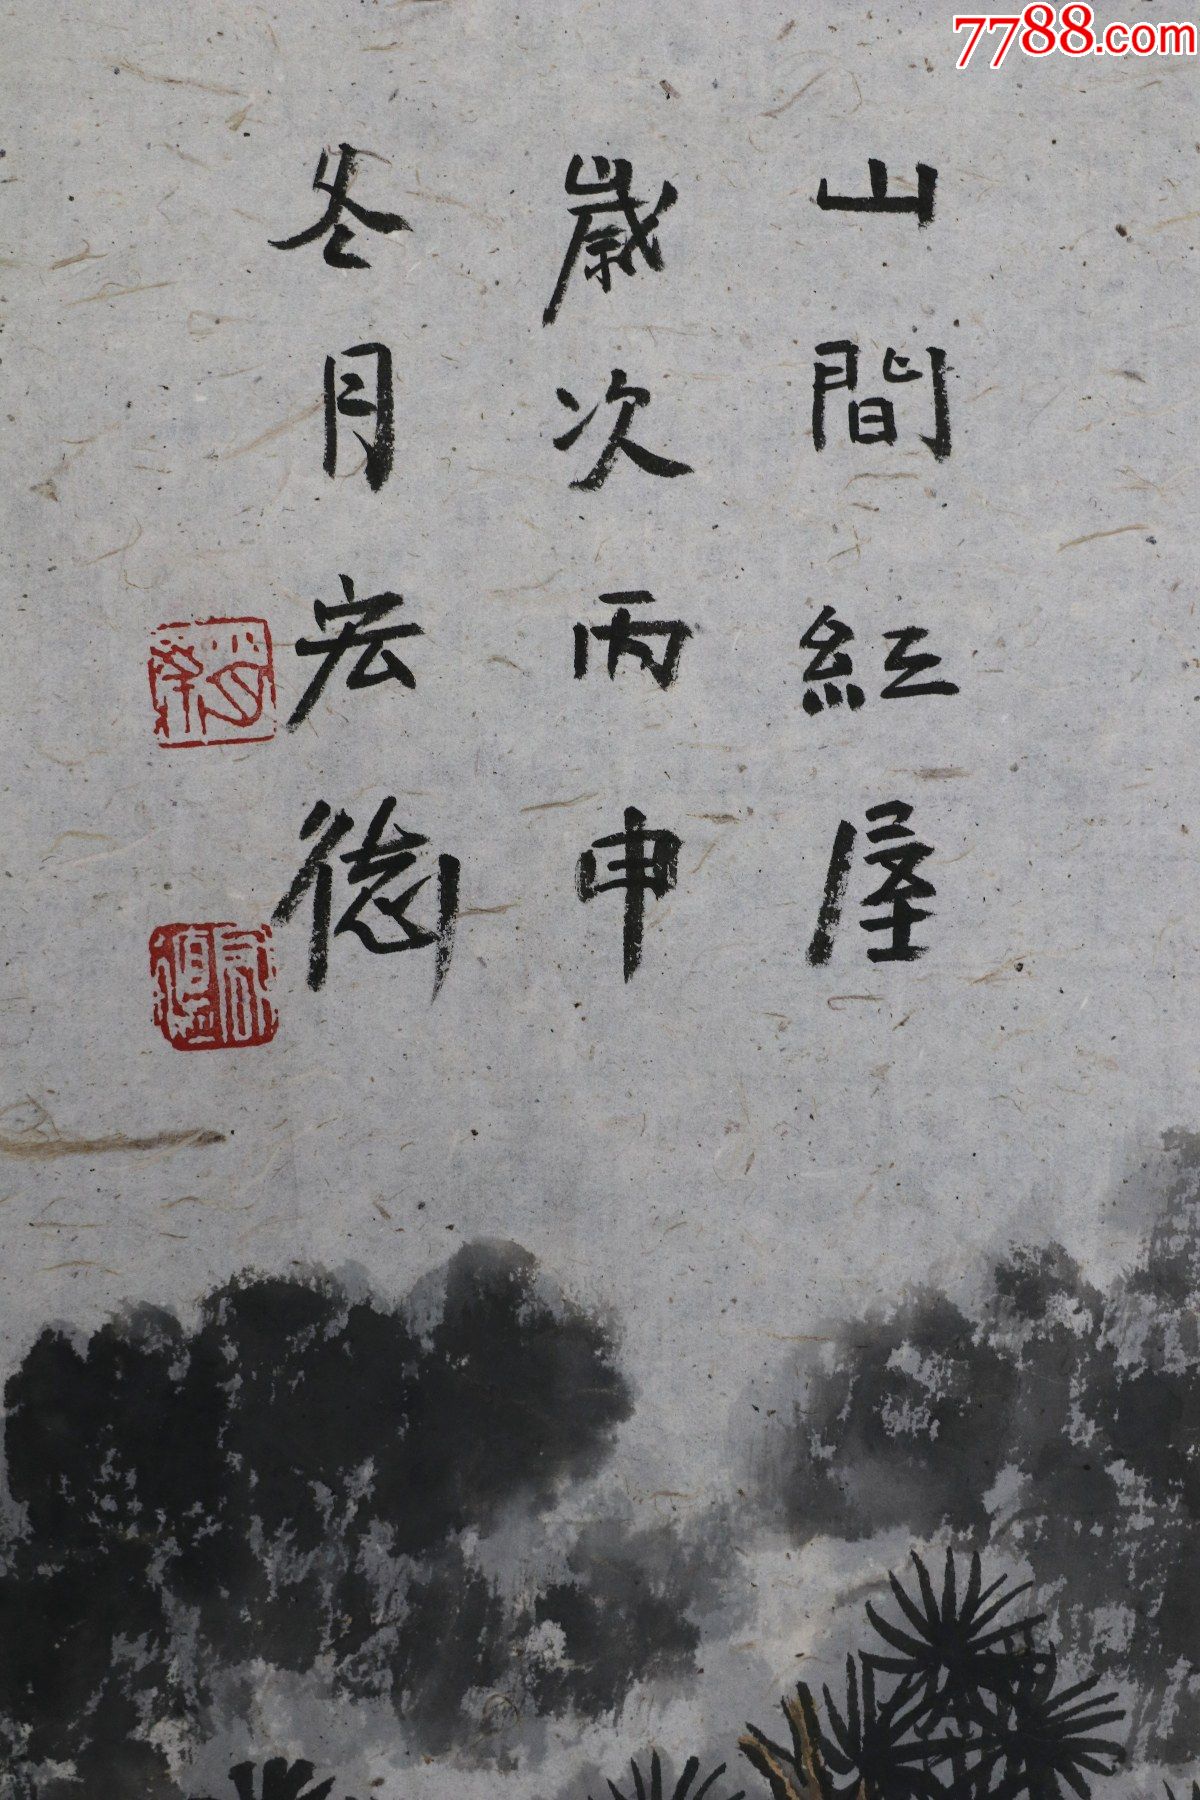 7788.com
山間紅屋
歲次丙申
冬月宏